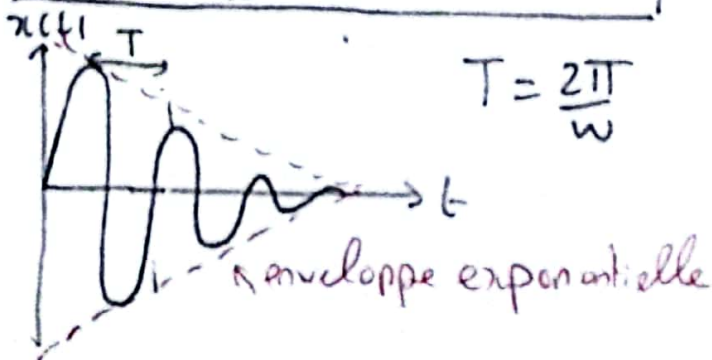 x(t)
T
T = 2π/w
t
enveloppe exponentielle